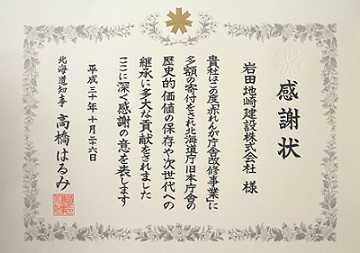 感謝状
岩田地崎建設株式会社 様
貴社はこの度「赤れんが庁舎改修事業」に
多額の寄付をされ北海道庁旧本庁舎の
歴史的価値の保存や次世代への
継承に多大な貢献をされました
ここに深く感謝の意を表します
平成三十年十月二十六日
北海道知事 高橋はるみ